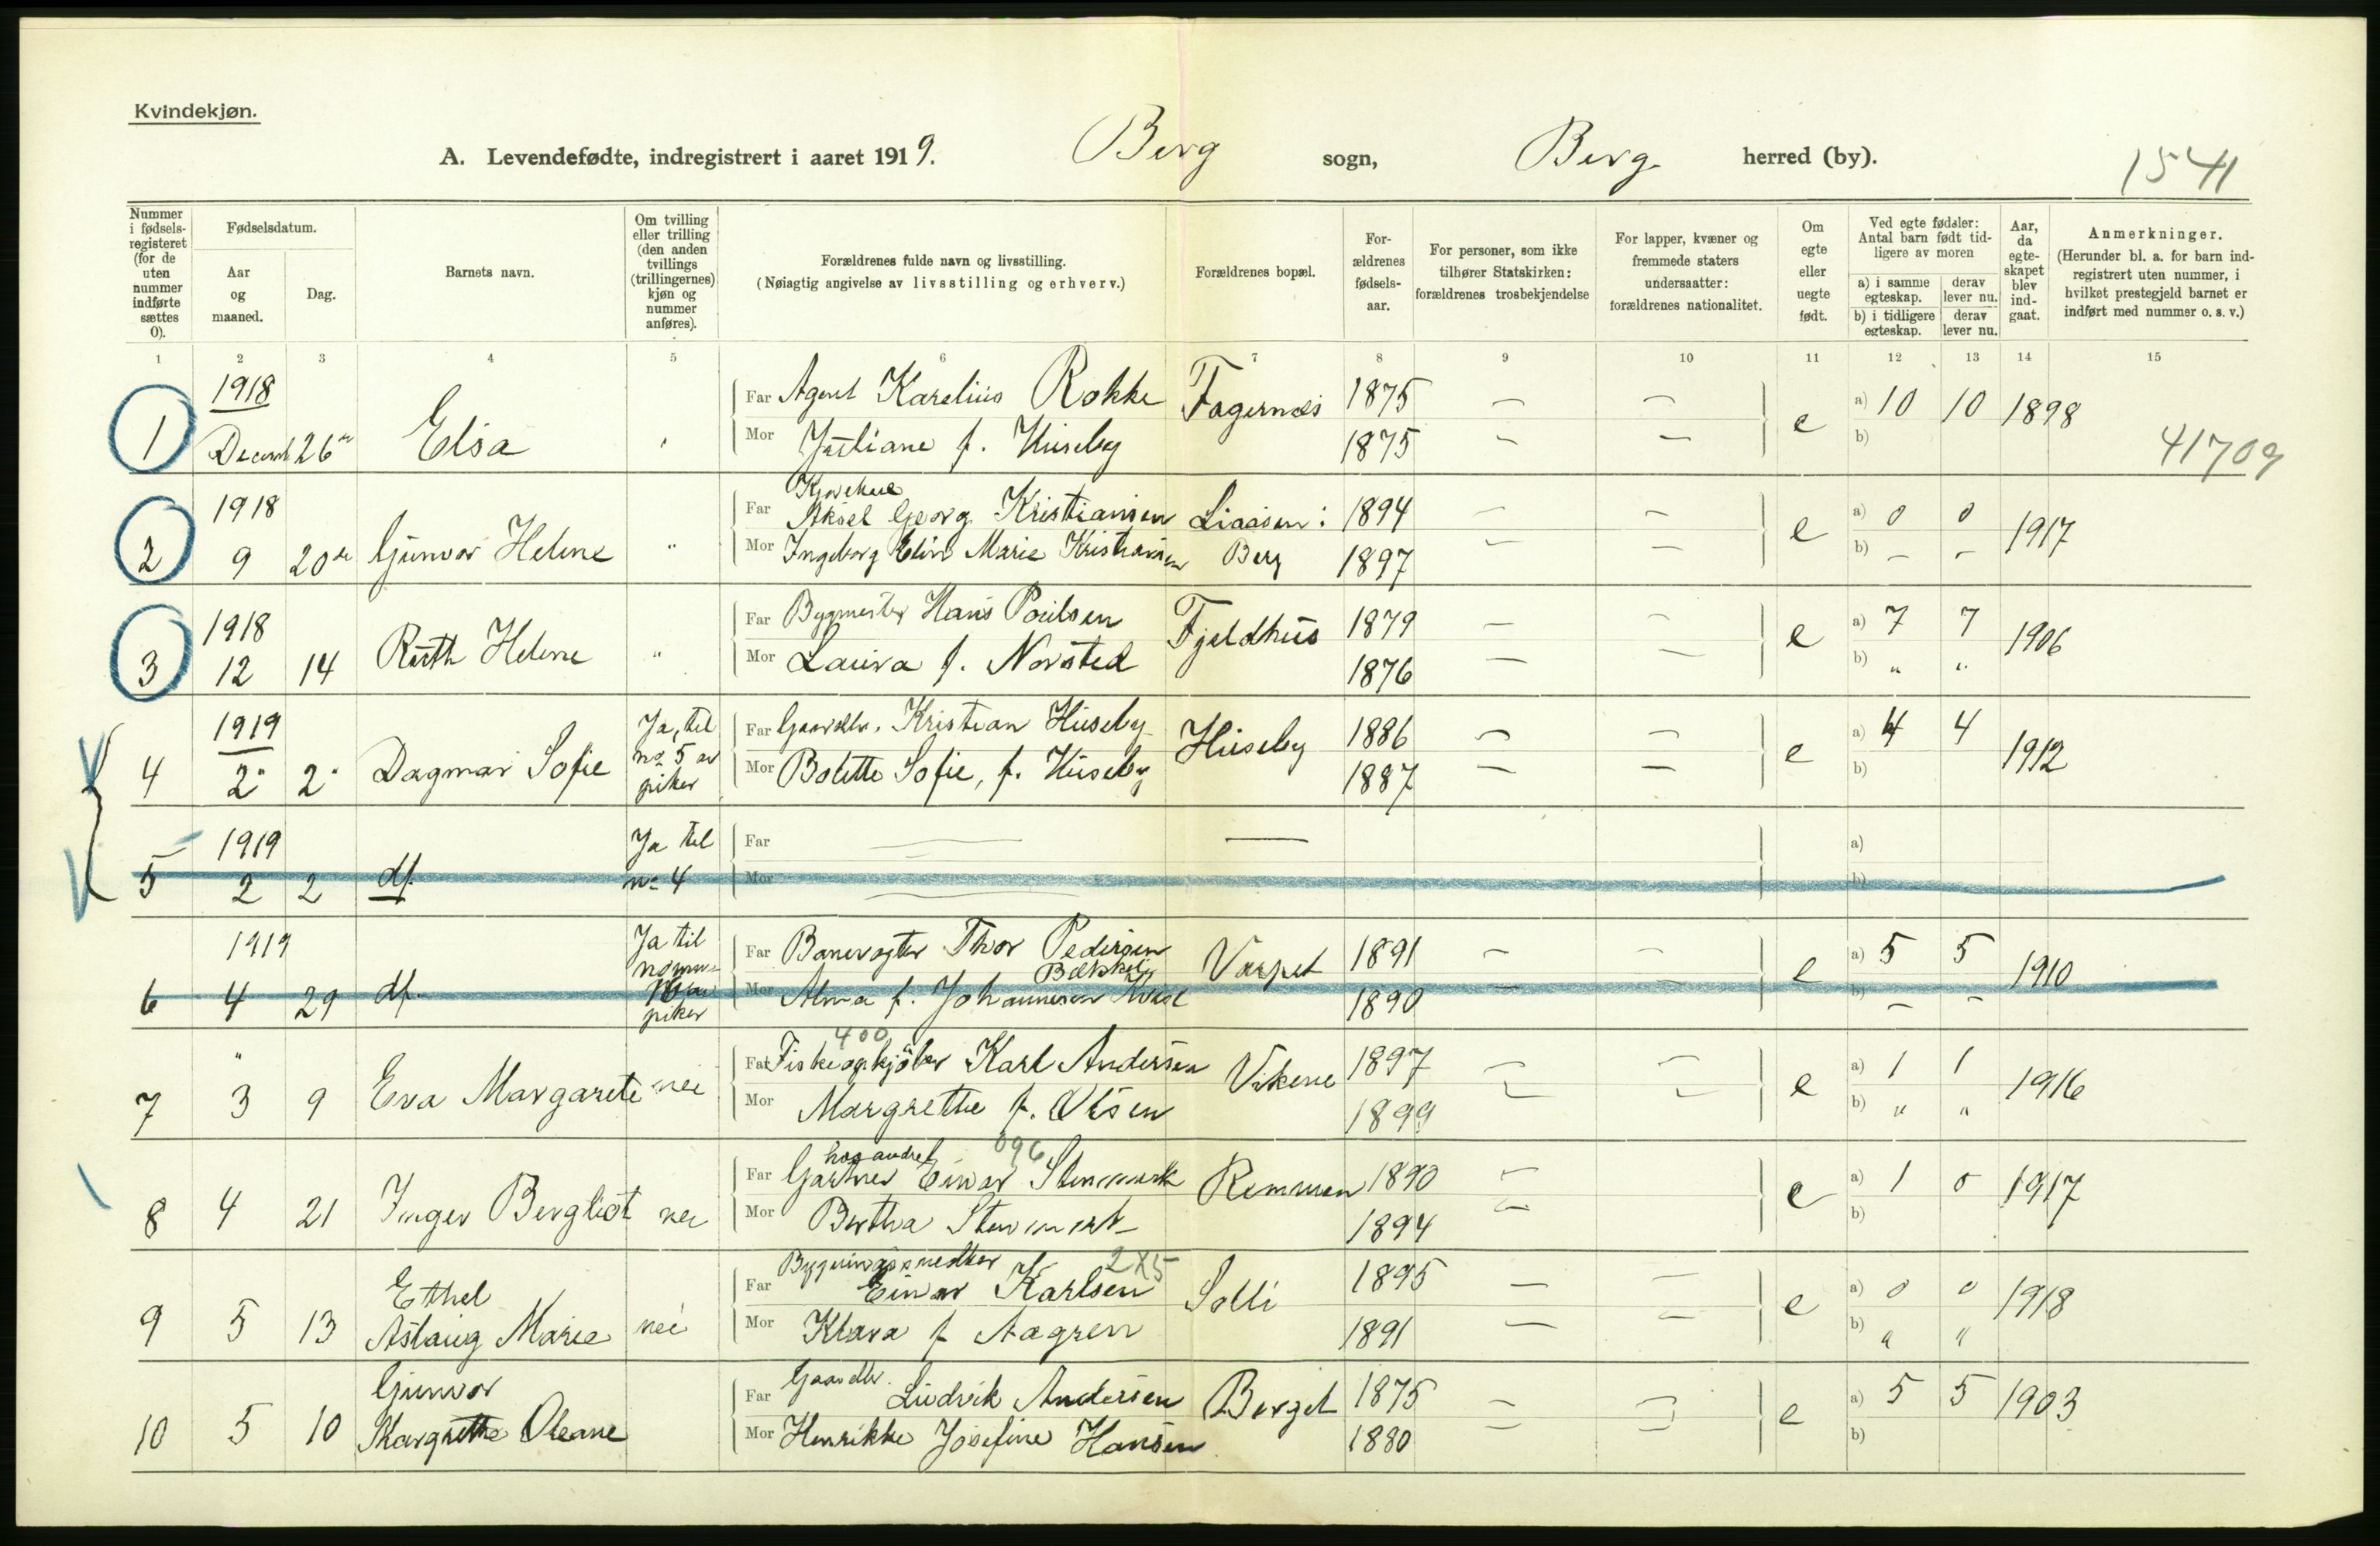 Kvindekjøn.
A. Levendefødte, indregistrert i aaret 1919. Berg sogn, Berg herred (by). 1541
Nummer i fødsels-registeret (for de uten nummer indførte sættes 0).
Fødselsdatum.
Aar og maaned.
Dag.
Barnets navn.
Om tvilling eller trilling (den anden tvillings (trillingernes) kjøn og nummer anføres).
Forældrenes fulde navn og livsstilling.
(Nøiagtig angivelse av livsstilling og erhverv.)
Forældrenes bopæl.
For-ældrenes fødsels-aar.
For personer, som ikke tilhører Statskirken: forældrenes trosbekjendelse
For lapper, kvæner og fremmede staters undersaatter: forældrenes nationalitet.
Om egte eller uegte født.
Ved egte fødsler: Antal barn født tid-ligere av moren
a) i samme egteskap. derav lever nu.
b) i tidligere egteskap. derav lever nu.
Aar, da egte-skapet blev ind-gaat.
Anmerkninger.
(Herunder bl. a. for barn ind-registrert uten nummer, i hvilket prestegjeld barnet er indført med nummer o. s. v.)
1 2 3 4 5 6 7 8 9 10 11 12 13 14 15
1918
Far Agent Karelius Rokke Fagernæs 1875 — — a) 10 10 1898
1 Decemb 26 Elsa Mor Juliane f. Huseby 1875 — — e b)
41709
1918
Far Aksel Georg Kristiansen Liaasen: 1894 — — a) 0 0
2 9 20de Gunvor Helene " Mor Ingeborg Elin Marie Kristiansen Berg 1897 — — e b) – – 1917
1918
Far Bygmester Hans Poulsen Fjeldhus 1879 — — a) 7 7
3 12 14 Ruth Helene " Mor Laura f. Norsted 1876 — — e b) " " 1906
1919 Ja, til
Far Gaardbr. Kristian Huseby Huseby 1886 — — a) 4 4
4 2 2 Dagmar Sofie no 5 av piker Mor Bolette Sofie, f. Huseby 1887 — — e b) 1912
1919 Ja til
Far — — a)
5 2 2 df. no 4 Mor — b)
1919 Ja til
Far Banevogter Thor Pedersen Varpet 1891 — — a) 5 5
Bækkely
6 4 29 df. piker Mor Alma f. Johannesen 1890 — e b) – – 1910
400
" Far Fiskeopkjøber Karl Andersen Vikene 1897 — — a) 1 1
7 3 9 Eva Margarete nei Mor Margrethe f. Olsen 1899 — — e b) " " 1916
hos andre 096
Far Gartner Einar Stenmark Remmen 1890 — a) 1 0
8 4 21 Inger Bergliot nei Mor Bertha Stenmark 1894 — e b) 1917
2X5
Ethel Far Einar Karlsen Solli 1895 — — a) 0 0
9 5 13 Aslaug Marie nei Mor Klara f Aagren 1891 — — e b) " " 1918
Gaardbr.
Gunvor Far Ludvik Andersen Berget 1875 — — a) 5 5
10 5 10 Margrethe Oleane Mor Henrikke Josefine Hansen 1880 — — e b) 1903